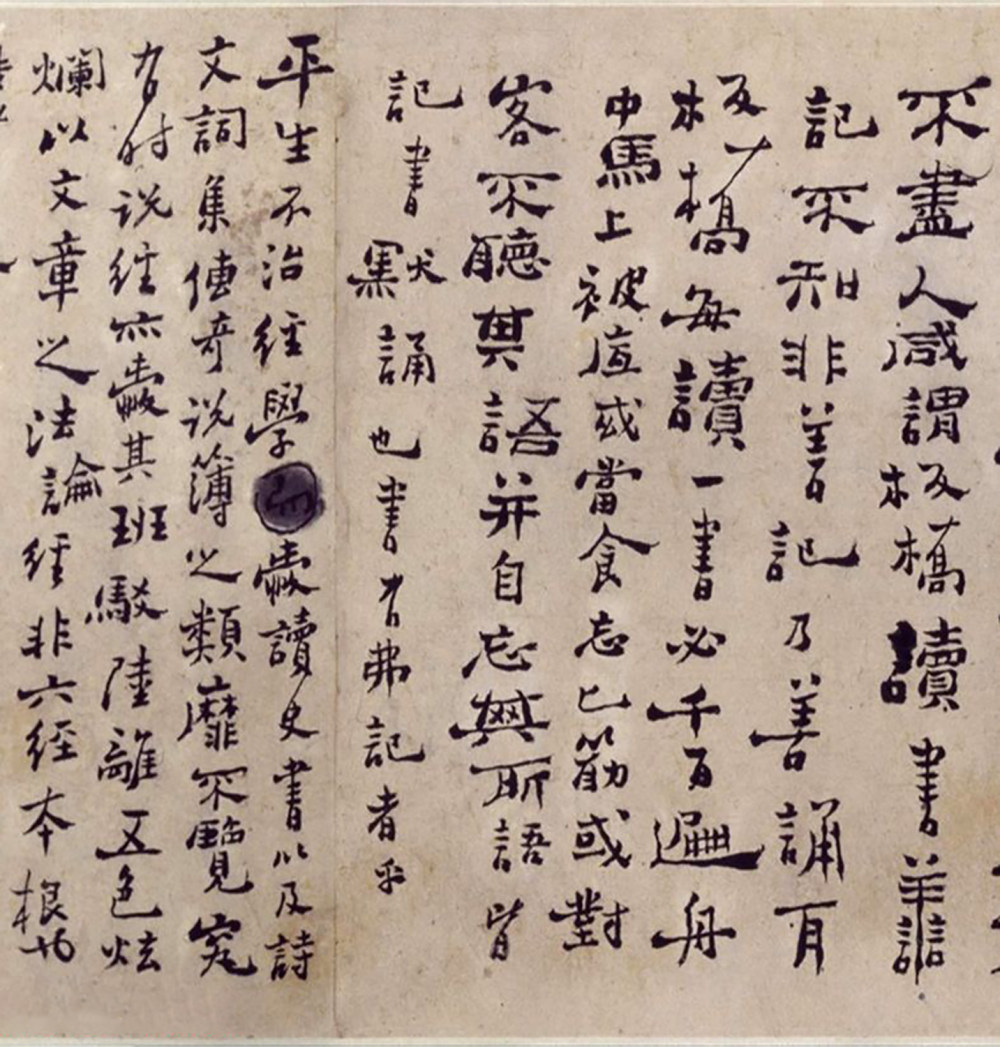 不盡人咸謂板橋讀書譱
記不知非善記乃善誦耳
板橋每讀一書必千百遍舟
中馬上被底或當食忘匕筯或對
客不聽其語并自忘其所語皆
記書默誦也書有弗記者乎
平生不治經學愛讀史書以及詩
文詞集傳奇说簿之類靡不覽究
有时说經亦愛其班駁陸離五色炫
爛以文章之法論經非六经本根也